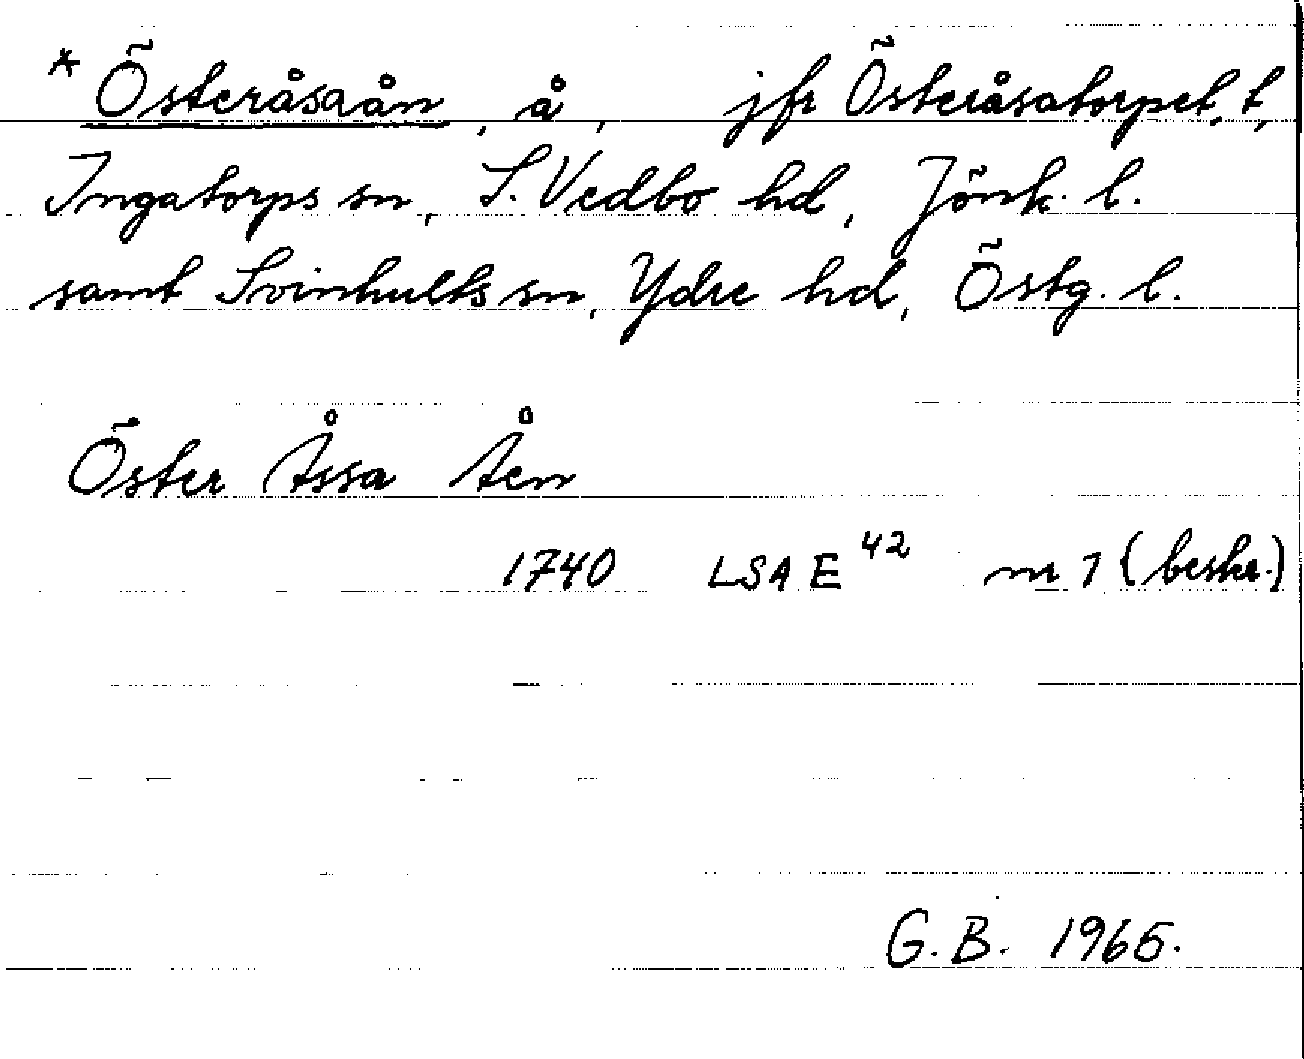 * Österåsaån, å, jfr Österåsatorpet, t,
Ingatorps sn, S. Vedbo hd, Jönk. l.
samt Svinhults sn, Ydre hd, Östg. l.
Öster Åssa Åen
1740 LSA E 42 nr 1 (beskr.)
G. B. 1965.